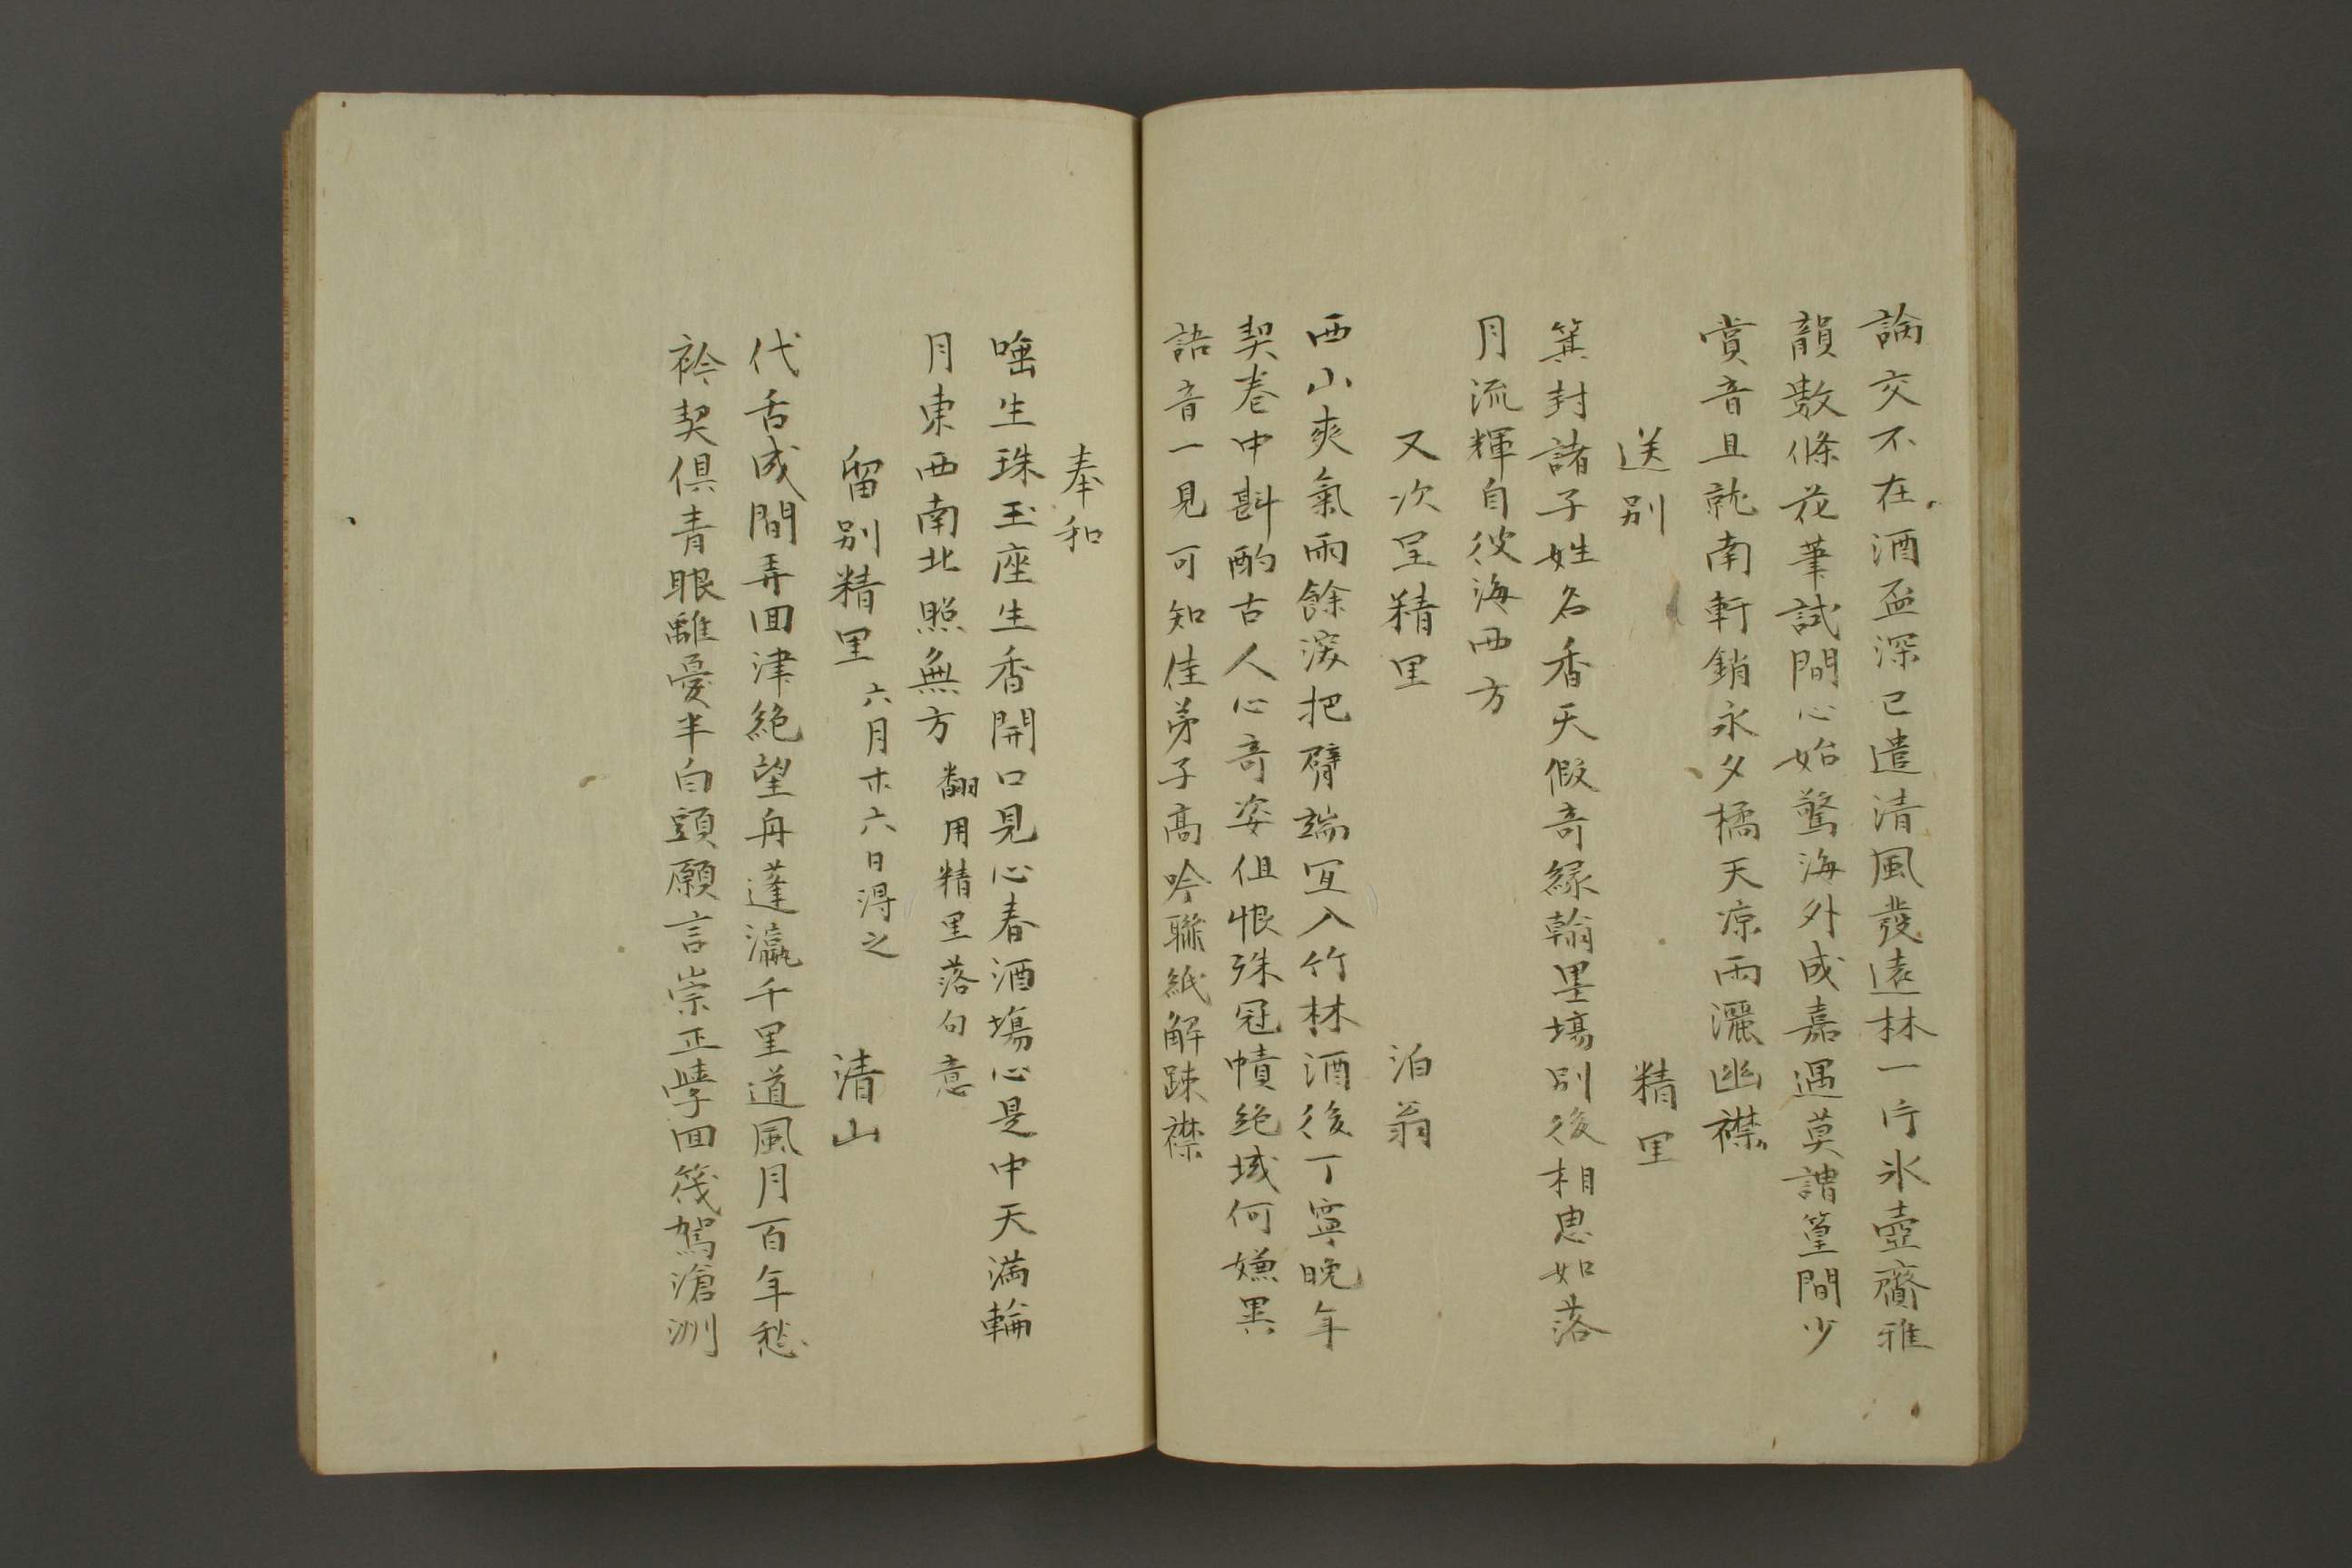 論交不在酒盃深已遣清風發遠林一片氷壺齎雅
韻數條花筆試間心始驚海外成嘉遇莫謂篁間少
賞音且就南軒銷永夕橘天凉雨灑幽襟
送別　精里
箕封諸子姓名香天假奇緣翰墨塲別後相思如落
月流輝自彼海西方
又次呈精里　泊翁
西山爽氣雨餘深把臂端宜入竹林酒後丁寧晩年
契卷中斟酌古人心奇姿但恨殊冠幘絶域何嫌異
語音一見可知佳弟子高吟聯紙解踈襟
奉和
唾生珠玉座生香開口見心春酒塲心是中天滿輪
月東西南北照無方 翻用精里落句意
留別精里 六月廿六日淂之　清山
代舌成間弄回津絶望舟蓬瀛千里道風月百年愁
衿契俱青眼離憂半白頭願言崇正學回筏駕滄洲